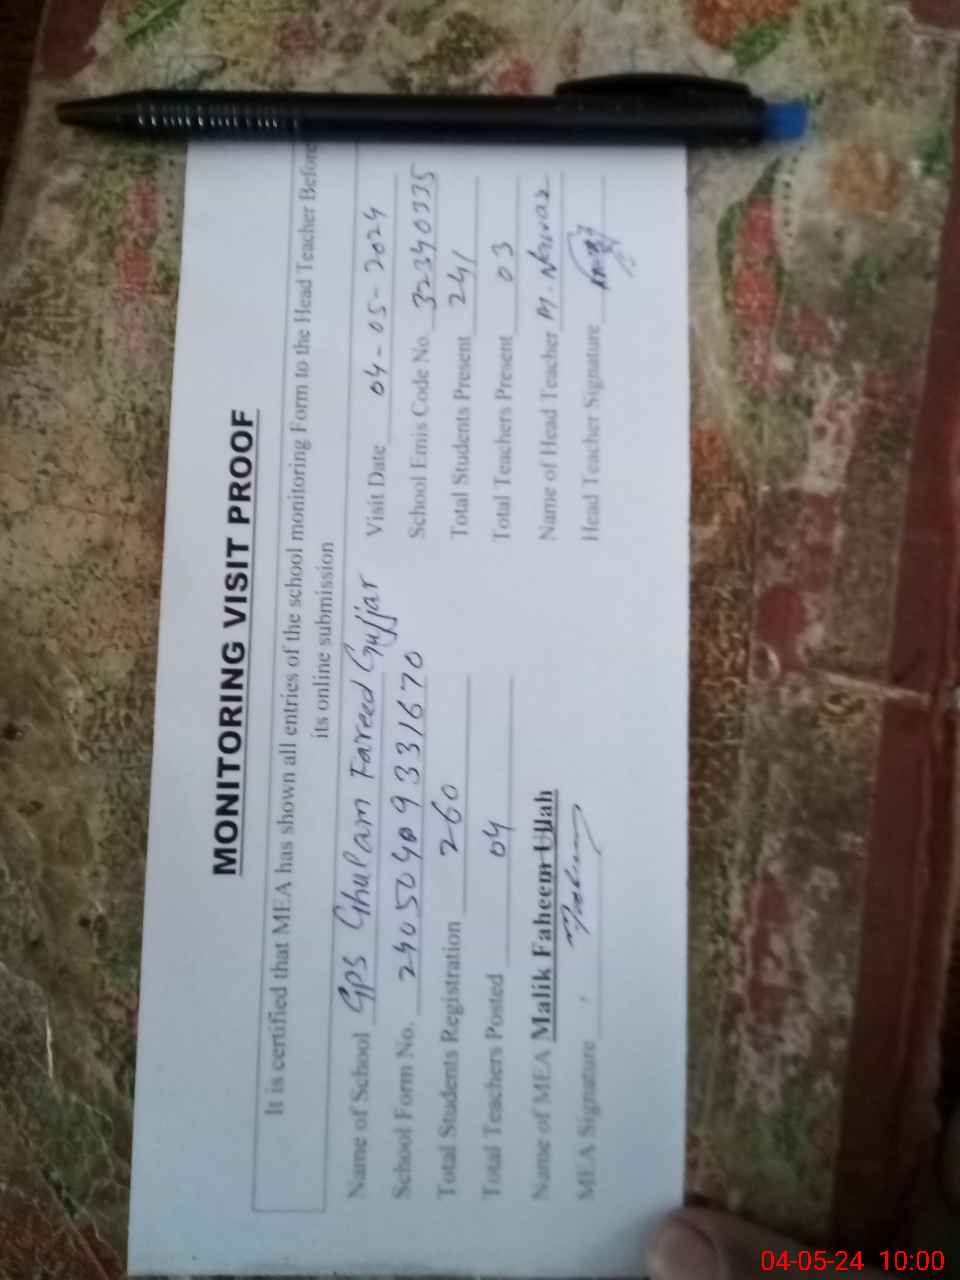 MONITORING VISIT PROOF
It is certified that MEA has shown all entries of the school monitoring Form to the Head Teacher Before
its online submission
Name of School GPS Ghulam Fareed Gujjar Visit Date 04-05-2024
School Form No. 24050409331670 School Emis Code No. 32340335
Total Students Registration 260 Total Students Present 241
Total Teachers Posted 04 Total Teachers Present 03
Name of MEA Malik Faheem Ullah Name of Head Teacher M. Nawaz
MEA Signature Head Teacher Signature
04-05-24 10:00